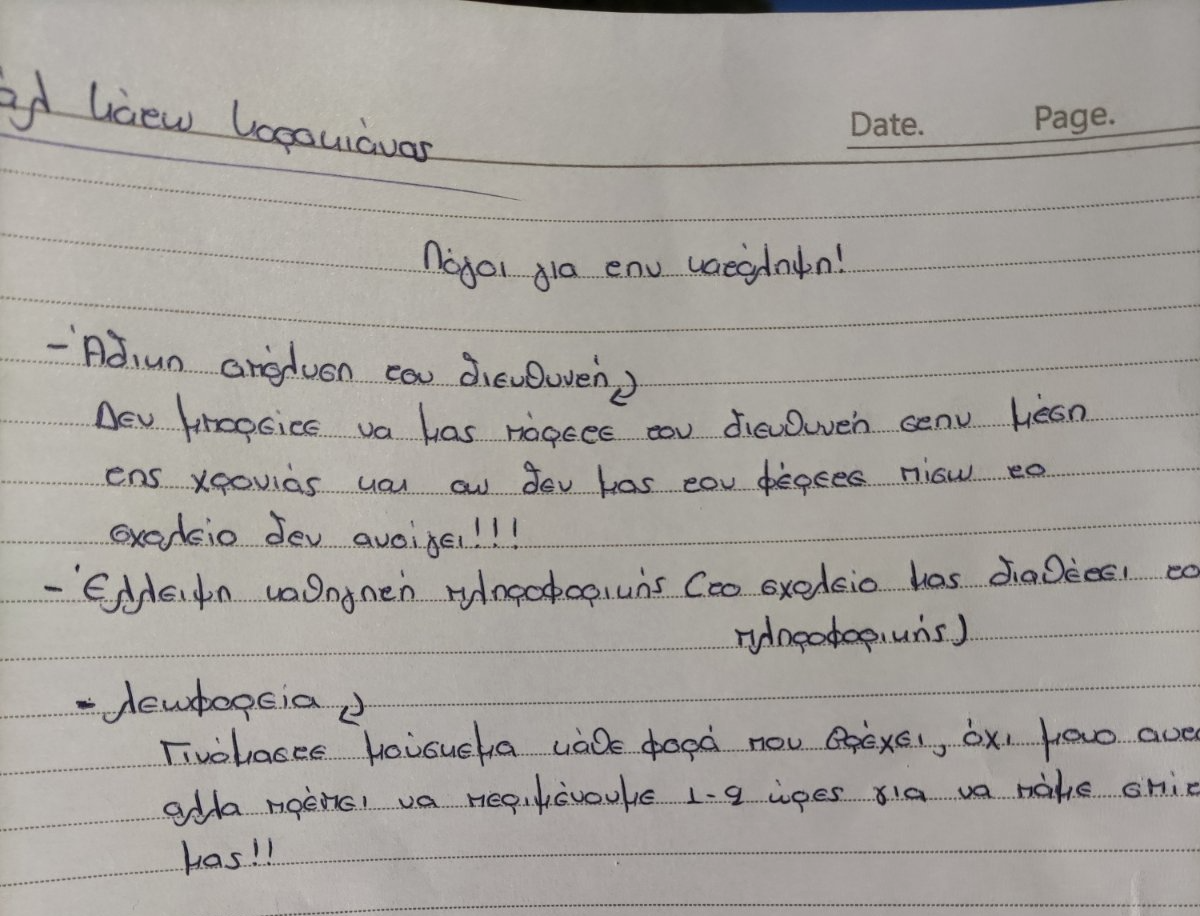 άλ κάτω κορακιάνας
Date. Page.
Λόγοι για την κατάληψη!
- Άδικη απόλυση του διευθυντή
Δεν μπορείτε να μας πάρετε τον διευθυντή στην μέση
της χρονιάς και αν δεν μας τον φέρετε πίσω το
σχολείο δεν ανοίγει!!!
- Έλλειψη καθηγητή πληροφορικής (το σχολείο μας διαθέτει το
πληροφορικής)
- Λεωφορεία
Γινόμαστε μούσκεμα κάθε φορά που βρέχει, όχι μονο αυτο
αλλα πρέπει να περιμένουμε 1-2 ώρες για να πάμε σπίτ
μας!!